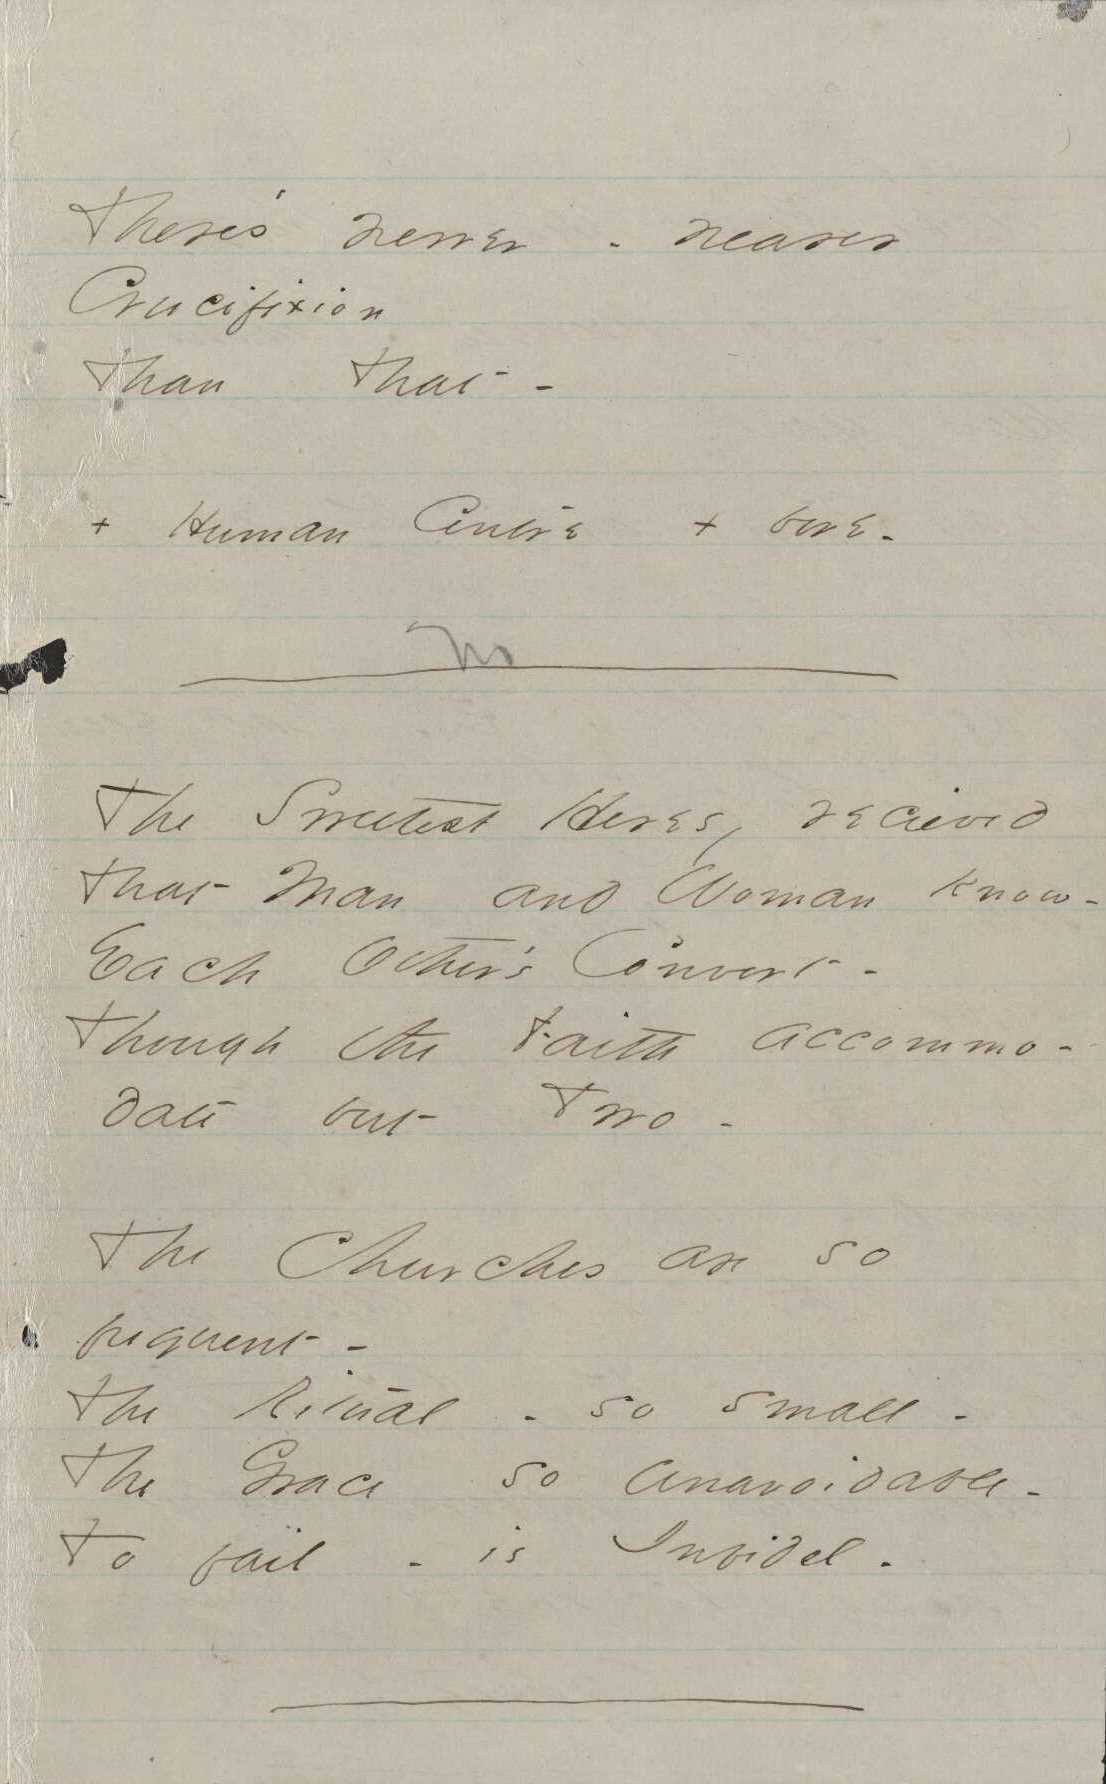 There's newer - nearer
Crucifixion
Than that -
+ Human Centre + bore -
No
The Sweetest Heresy recieved
That Man and Woman know -
Each Other's Convert -
Though the Faith accommo -
date but Two -
The Churches are so
frequent -
The Ritual - so small -
The Grace so unavoidable -
To fail - is Infidel -